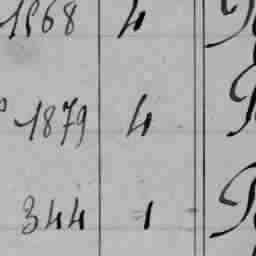 1868 4
1879 4
344 1